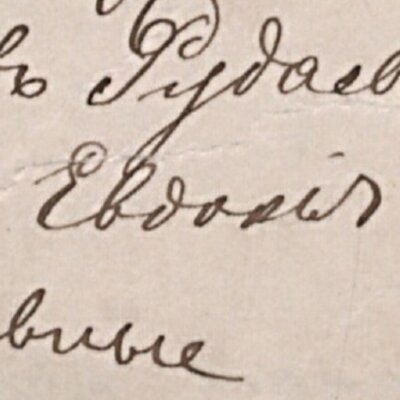 въ Рудаев
Евдокія
вные